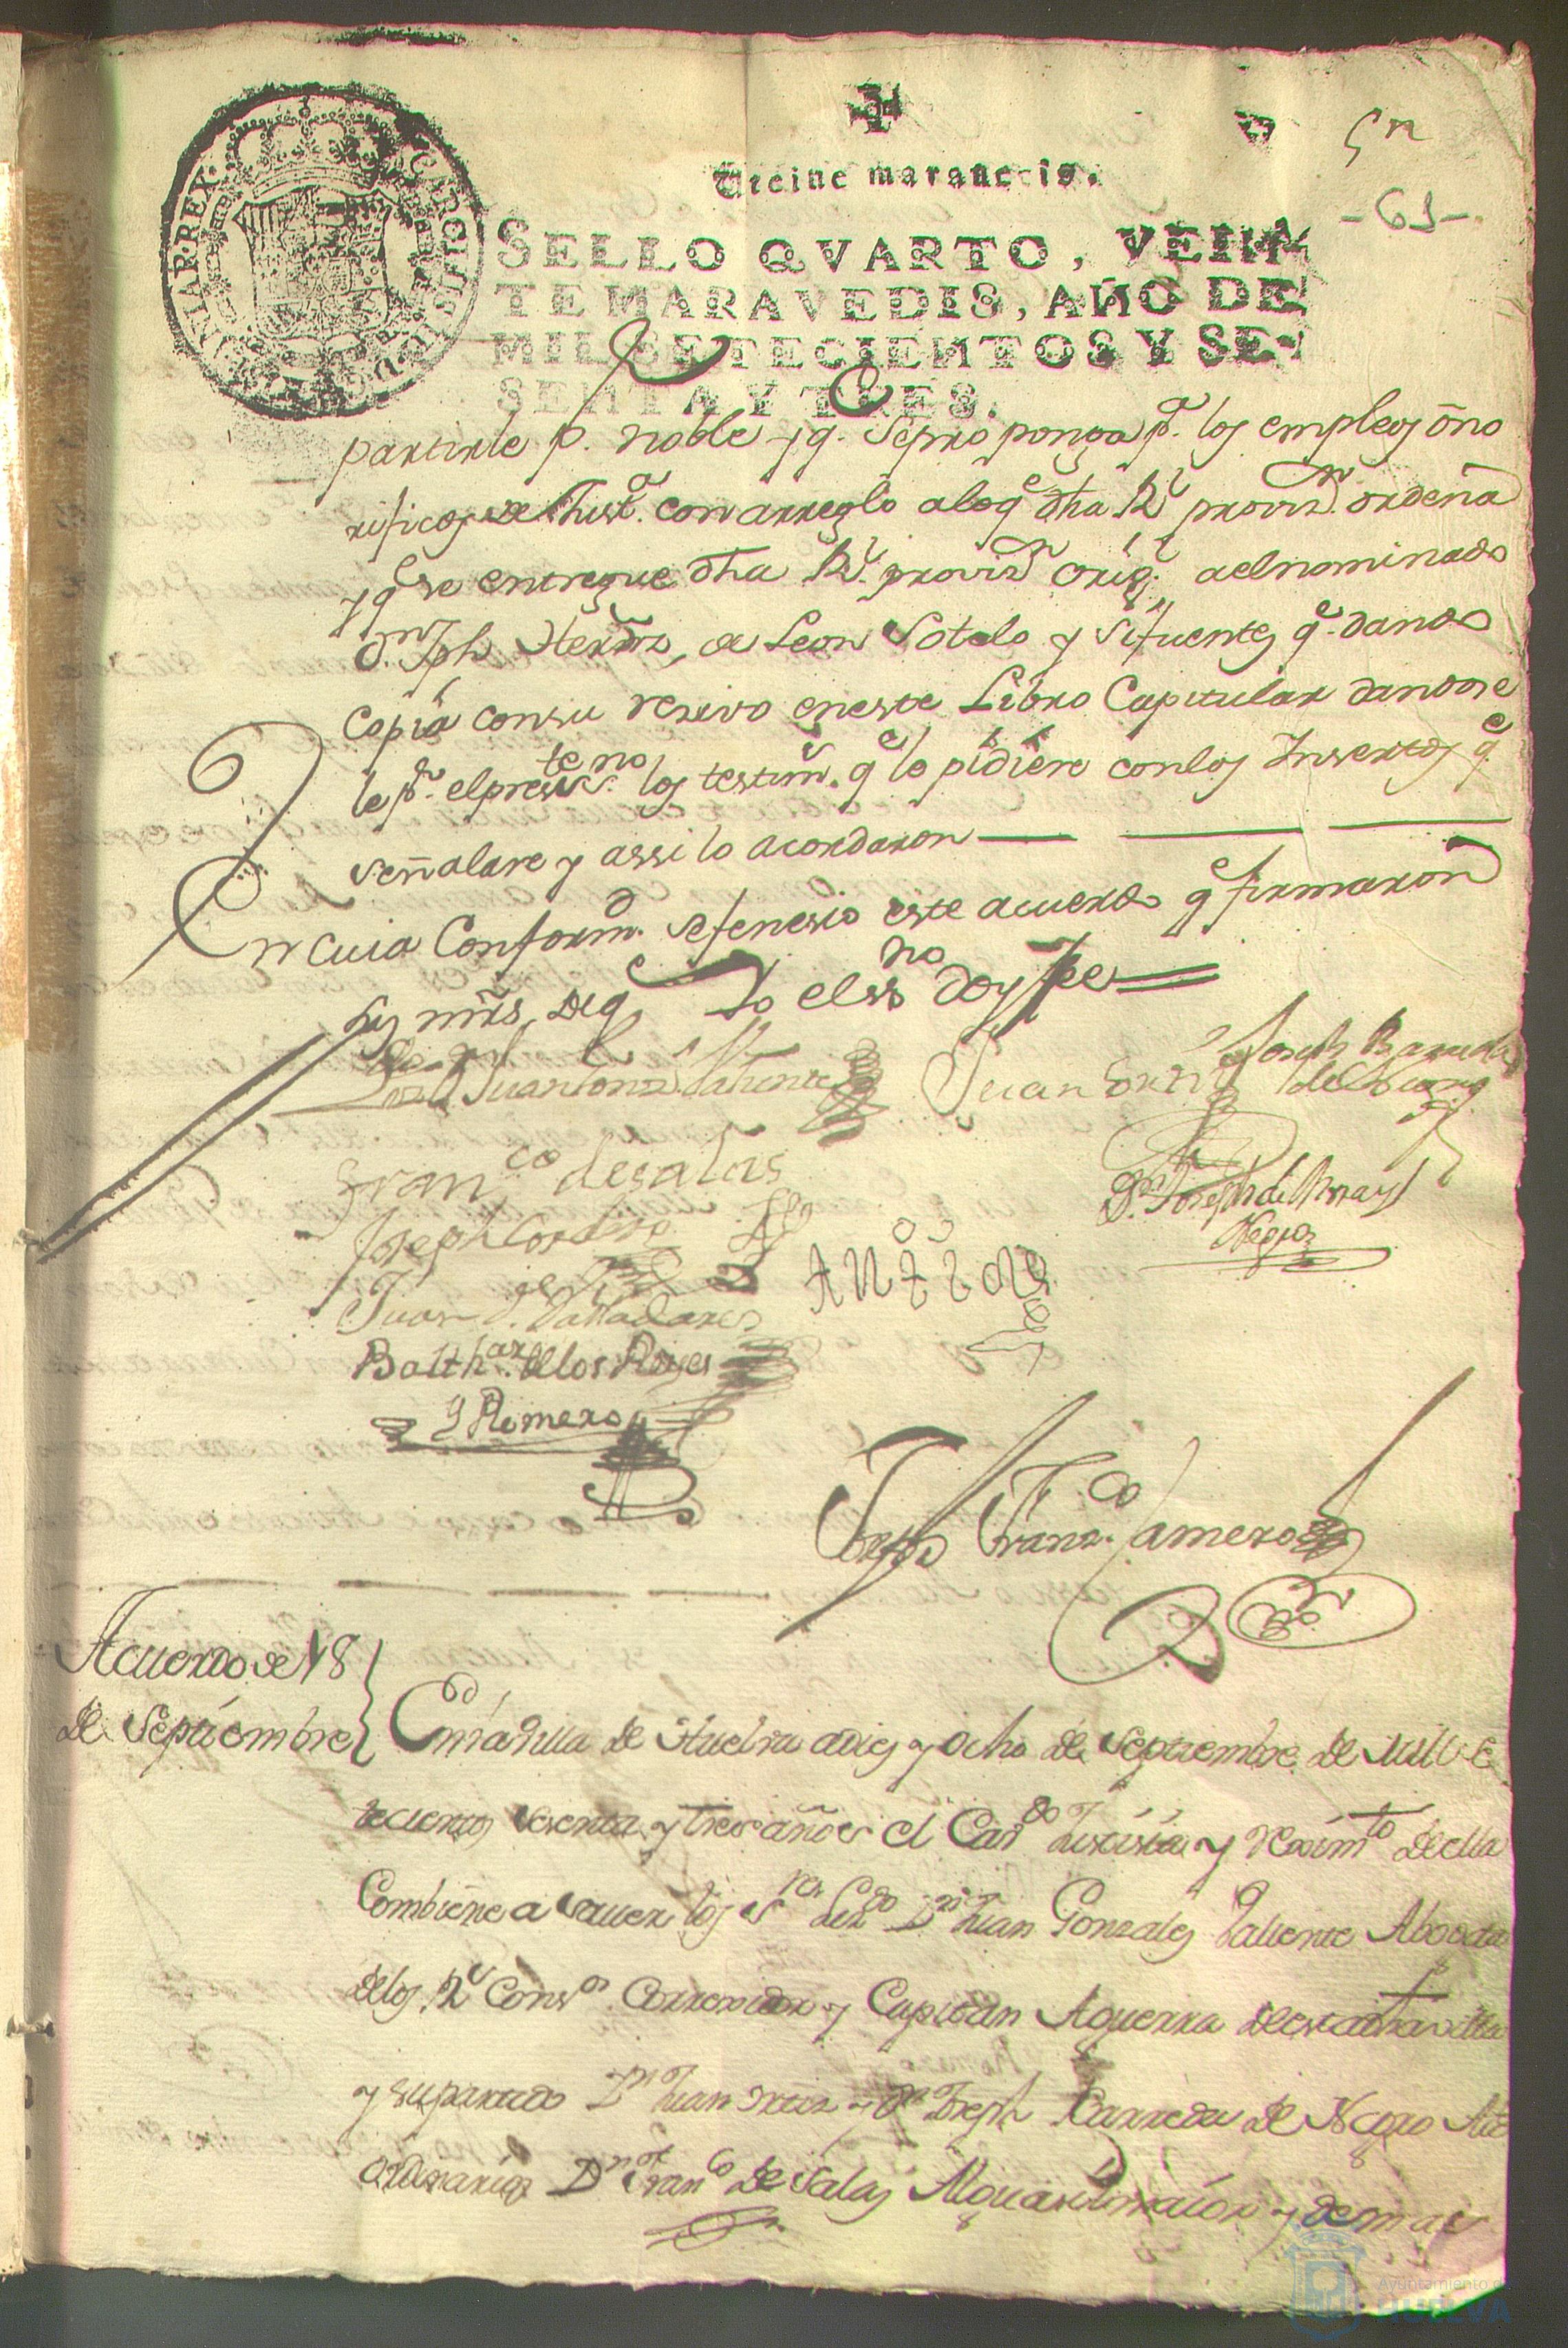 Veinte maravedis.
SELLO QVARTO, VEIN-
TE MARAVEDIS, AÑO DE
MIL SETECIENTOS Y SE-
SENTA Y TRES.
-61-
partirle p. noble y q. se proponga pa. los empleos ōno
rificos de Just.a con arreglo a lo q.e dha Rl provis.n ordena
y q.e se entregue dha Rl. provis.n orig.l a el nominado
Dn. Jph Hernz, de Leon Sotelo y Sifuentes q.e dando
copia con su resivo en este Libro Capitular dandose
le pr. el preste. ssno. los testims. q.e lo pidiere con los Insertos q.e
señalare y assi lo acordaron
En cuia Conformd. se fenesio este acuerdo q.e firmaron
sus mrds, de q.e Yo el ssno doy fee
Lizdo Dn Juan Gonz Valiente Juan Ortiz Joseph Barreda
de Negro
Franco. de Salas
Dn. Joseph de
Joseph Cordero
Juan Valladares
Balthar. de los Reyes
y Romero
Joseph Franco. Camero
Acuerdo de 18
de Septiembre
En la Villa de Huelva a dies y ocho de Septiembre de mill se
tecientos sesenta y tres años el Cavdo Justisia y Reximto de ella
Combiene a saver los Sres Lizdo Dn Juan Gonzales Valiente Abogado
de los Rs Consos Correxidor y Capitan Aguerra de esta dha villa
y su partido Dn Juan Ortiz y Dn Joseph Barreda de Negro
Ordinarios Dn Franco de Salas Alguasil maior y demas
Ayuntamiento de
HUELVA